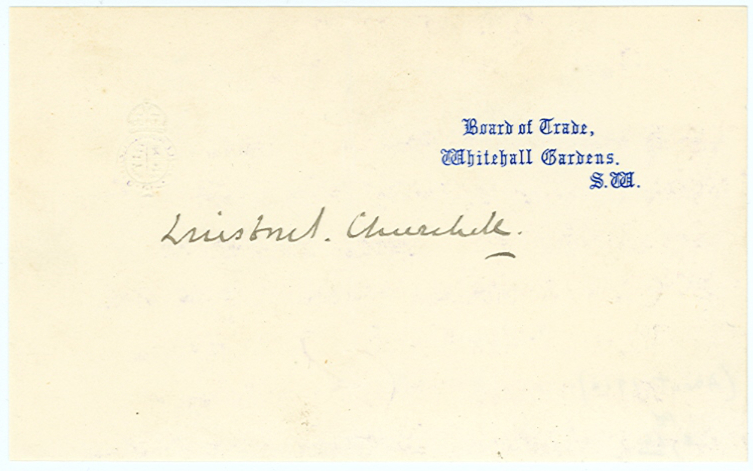 Board of Trade,
Whitehall Gardens.
S.W.
Winston S. Churchill.